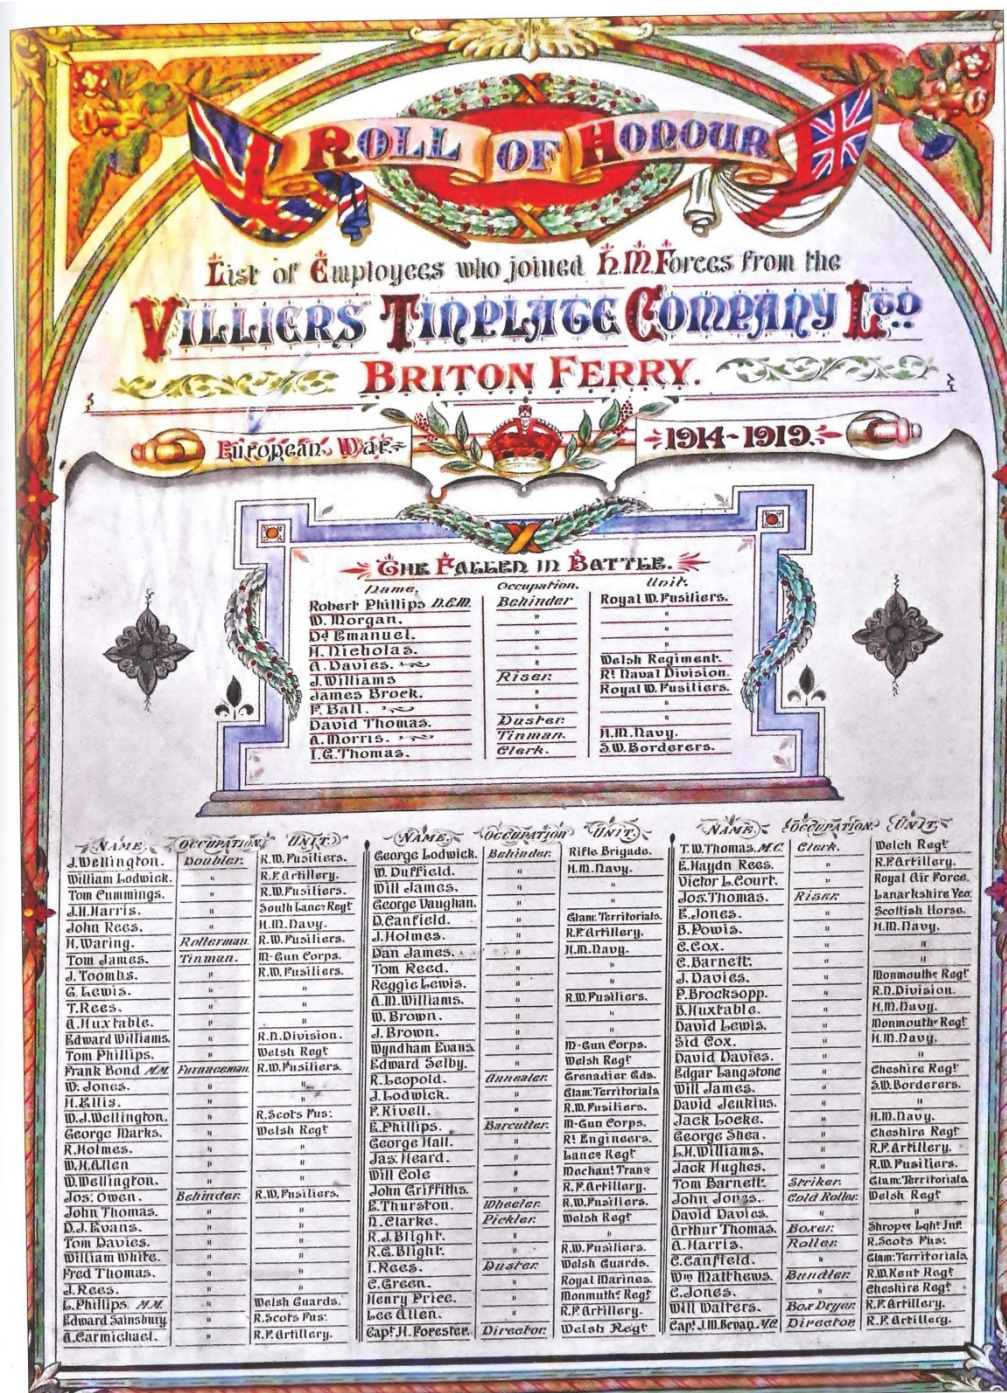 ROLL OF HONOUR
List of Employees who joined H.M. Forces from the
VILLIERS TINPLATE COMPANY LTD.
BRITON FERRY.
European War 1914-1919.
THE FALLEN IN BATTLE.
Name. Occupation. Unit.
Robert Phillips D.C.M. Behinder Royal W. Fusiliers.
W. Morgan. " "
Dd Emanuel. " "
H. Nicholas. " "
A. Davies. " Welsh Regiment.
J. Williams Riser. Rl Naval Division.
James Brock. " Royal W. Fusiliers.
F. Ball. " "
David Thomas. Duster. "
A. Morris. Tinman. H.M. Navy.
I.G. Thomas. Clerk. S.W. Borderers.
NAME. OCCUPATION. UNIT.
J. Wellington. Doubler. R.W. Fusiliers.
William Lodwick. " R.F. Artillery.
Tom Cummings. " R.W. Fusiliers.
J.H. Harris. " South Lancs Regt
John Rees. " H.M. Navy.
H. Waring. Rollerman. R.W. Fusiliers.
Tom James. Tinman. M-Gun Corps.
J. Toombs. " R.W. Fusiliers.
G. Lewis. " "
T. Rees. " "
A. Huxtable. " "
Edward Williams. " R.N. Division.
Tom Phillips. " Welsh Regt
Frank Bond M.M. Furnaceman. R.W. Fusiliers.
W. Jones. " "
H. Ellis. " "
W.J. Wellington. " R. Scots Fus:
George Marks. " Welsh Regt
R. Holmes. " "
W.H. Allen " "
W. Wellington. " "
Jos: Owen. Behinder. R.W. Fusiliers.
John Thomas. " "
D.J. Evans. " "
Tom Davies. " "
William White. " "
Fred Thomas. " "
J. Rees. " "
L. Phillips. M.M. " Welsh Guards.
Edward Sainsbury. " R. Scots Fus:
A. Carmichael. " R.F. Artillery.
NAME. OCCUPATION UNIT.
George Lodwick. Behinder. Rifle Brigade.
W. Duffield. " H.M. Navy.
Will James. " "
George Vaughan. " "
D. Canfield. " Glam: Territorials.
J. Holmes. " R.F. Artillery.
Dan James. " H.M. Navy.
Tom Reed. " "
Reggie Lewis. " "
A.M. Williams. " R.W. Fusiliers.
W. Brown. " "
J. Brown. " "
Wyndham Evans " M-Gun Corps.
Edward Selby. " Welsh Regt
R. Leopold. Annealer. Grenadier Gds.
J. Lodwick. " Glam: Territorials
F. Kivell. " R.W. Fusiliers.
E. Phillips. Barcutter. M-Gun Corps.
George Hall. " Rl Engineers.
Jas: Heard. " Lancs Regt
Will Cole " Mechanl Trans
John Griffiths. " R.F. Artillery.
E. Thurston. Wheeler. R.W. Fusiliers.
N. Clarke. Pickler. Welsh Regt
R.J. Blight. " "
R.G. Blight. " R.W. Fusiliers.
I. Rees. Duster. Welsh Guards.
C. Green. " Royal Marines.
Henry Price. " Monmuths Regt
Lee Allen. " R.F. Artillery.
Capt. H. Forester. Director. Welsh Regt
NAME. OCCUPATION. UNIT.
T.W. Thomas. M.C. Clerk. Welch Regt
E. Haydn Rees. " R.F. Artillery.
Victor L. Court. " Royal Air Force.
Jos: Thomas. Riser. Lanarkshire Yeo:
E. Jones. " Scottish Horse.
B. Powis. " H.M. Navy.
C. Cox. " "
C. Barnett. " "
J. Davies. " Monmouths Regt
P. Brocksopp. " R.N. Division.
B. Huxtable. " H.M. Navy.
David Lewis. " Monmouths Regt
Sid Cox. " H.M. Navy.
David Davies. " "
Edgar Langstone " Cheshire Regt
Will James. " S.W. Borderers.
David Jenkins. " "
Jack Locke. " H.M. Navy.
George Shea. " Cheshire Regt
L.H. Williams. " R.F. Artillery.
Jack Hughes. " R.W. Fusiliers.
Tom Barnett. Striker. Glam: Territorials
John Jones. Cold Roller. Welsh Regt
David Davies. " "
Arthur Thomas. Boxer. Shrops Lght Inf.
A. Harris. Roller. R. Scots Fus:
C. Canfield. " Glam: Territorials.
Wm Matthews. Bundler. R.W. Kent Regt
C. Jones. " Cheshire Regt
Will Walters. Box Dryer. R.F. Artillery.
Capt. J.M. Bevan. Director R.F. Artillery.